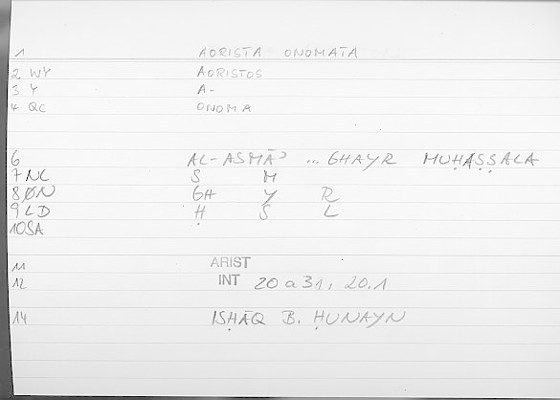 1 AORISTA ONOMATA
2 WY AORISTOS
3 Y A-
4 QC ONOMA
6 AL-ASMĀʾ ... GHAYR MUḤAṢṢALA
7 NC S M
8 ØN GH Y R
9 LD Ḥ Ṣ L
10 SA
11 ARIST
12 INT 20 a 31, 20.1
14 ISḤĀQ B. ḤUNAYN